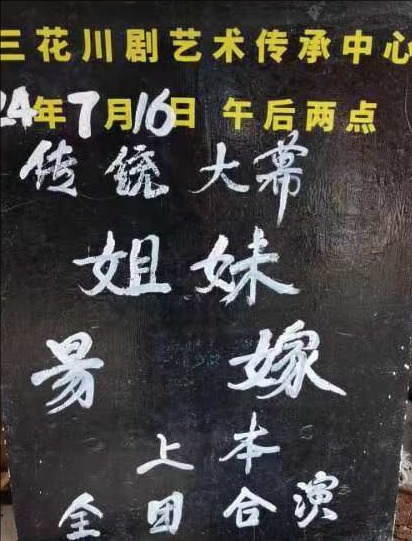 三花川剧艺术传承中心
24年7月16日 午后两点
传统大幕
姐妹
易嫁
上本
全团合演